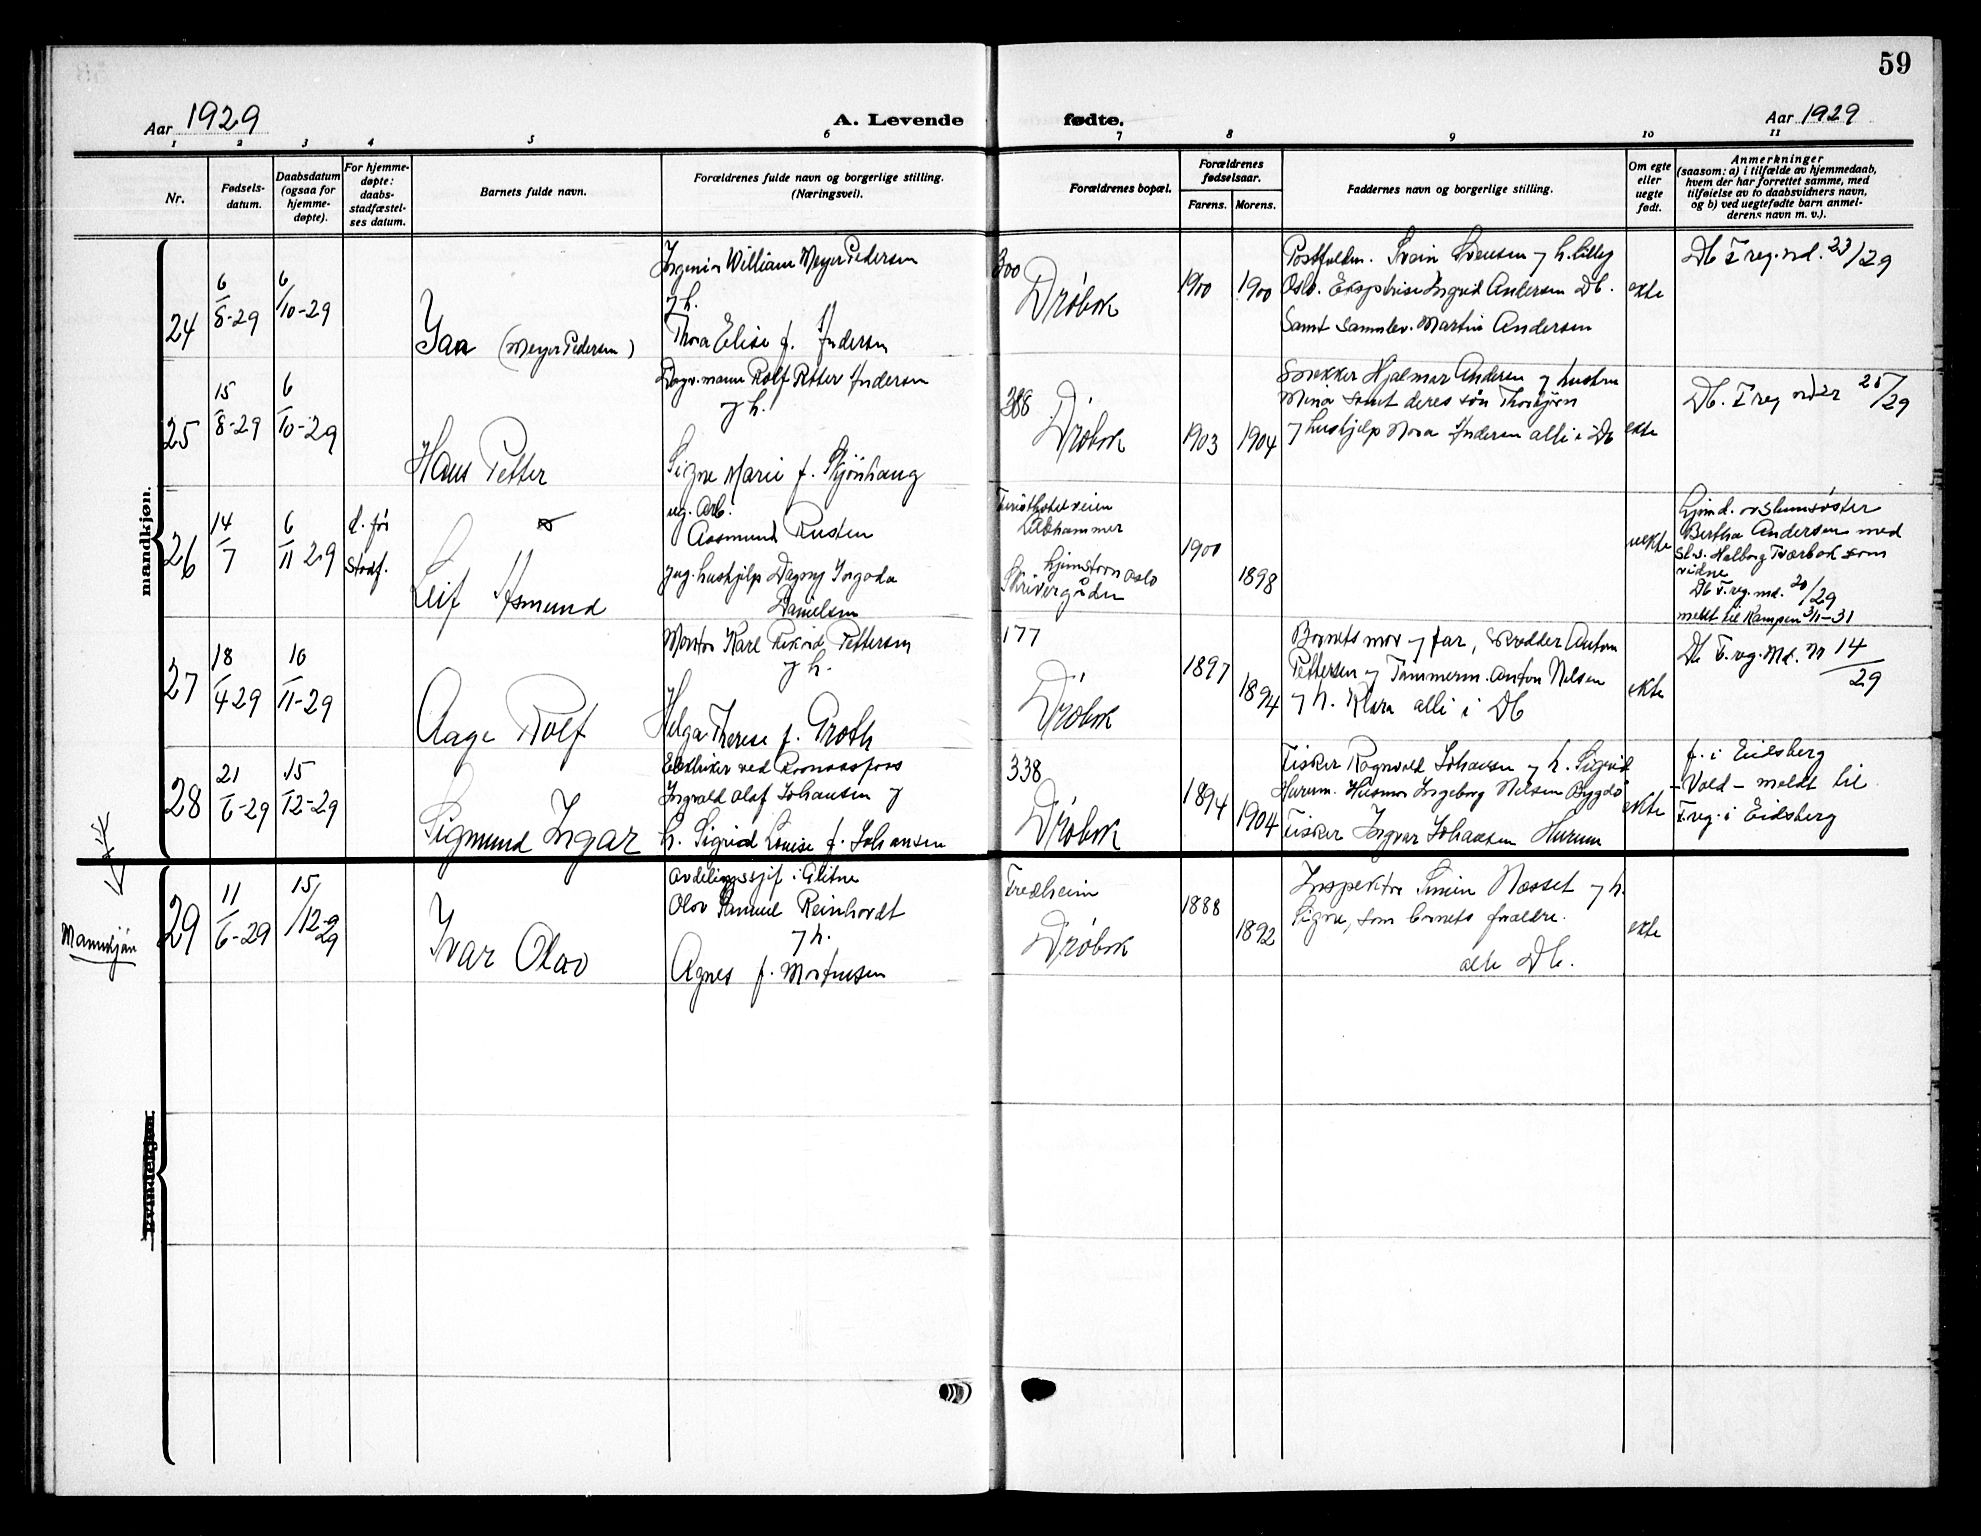 59
Aar 1929
A. Levende fødte.
Aar 1929
1 2 3 4 5 6 7 8 9 10 11
Nr.
Fødsels-
datum.
Daabsdatum
(ogsaa for
hjemme-
døpte).
For hjemme-
døpte:
daabs-
stadfæstel-
ses datum.
Barnets fulde navn.
Forældrenes fulde navn og borgerlige stilling.
(Næringsvei).
Forældrenes bopæl.
Forældrenes
fødselsaar.
Farens. Morens.
Faddernes navn og borgerlige stilling.
Om egte
eller
uegte
født.
Anmerkninger
(saasom: a) i tilfælde av hjemmedaab,
hvem der har forrettet samme, med
tilføielse av to daabsvidners navn,
og b) ved uegtefødte barn anmel-
derens navn m. v.).
mandkjøn.
24
6/8-29
6/10-29
Jan (Meyer Pedersen)
Ingeniør William Meyer Pedersen
og h.
Thora Elise f. Andersen
300
Drøbak
1900
1900
Svein Svensen og h. Lilly
Oslo. Ingrid Andersen Db.
Samt Martin Andersen
ekte
Db F reg. nd. 23/29
25
15/8-29
6/10-29
Hans Petter
Dagv. mann Rolf Petter Andersen
og h.
Signe Marie f. Skjönhaug
388
Drøbak
1903
1904
Snekker Hjalmar Andersen og hustru
Mina samt deres søn Thorbjørn
og hushjelp Nora Andersen alle i Db
ekte
Db. F reg 25/29
26
14/7
6/11 29
d. før
stadf.
Leif Asmund
ug. Arb.
Aasmund Rusten
og ug. hushjelp Dagny Ingoda
Danielsen
Turisthotelveien
Lillehammer
hjemstavn Oslo
Skrivergården
1900
1898
uekte
hjemd. av slumsøster
Bertha Andersen med
sl.s. Halborg Tværbak som
vidne
Db F. reg. md. 20/29
meldt til Kampen 3/11-31
27
18/4-29
10/11-29
Aage Rolf
Montør Karl Rikard Pettersen
og h.
Helga Therese f. Groth
177
Drøbak
1897
1894
Barnets mor og far, skrædder Anton
Pettersen og Tømmerm. Anton Nilsen
og h. Klara alle i Db
ekte
Db F. reg. Md. Nr 14/29
28
21/6-29
15/12-29
Sigmund Ingar
Elektriker ved Raanaasfoss
Ingvald Olaf Johansen og
h. Sigrid Louise f. Johansen
338
Drøbak
1894
1904
Fisker Ragnvald Johansen og h. Sigrid
Hurum. Husmor Ingeborg Nilsen Bygdø
Fisker Ingvar Johansen Hurum
ekte
f. i Eidsberg
- Vold - meldt til
F.reg. i Eidsberg
Mannkjøn
29
11/6-29
15/12-29
Ivar Olav
Avdelingssjef i Glitne
Olov Samuel Reinhardt
og h.
Agnes f. Mortensen
Fredheim
Drøbak
1888
1892
Inspektør Simen Næsset og h.
Signe, som barnets forældre.
alle Db.
ekte
kvindekjøn.